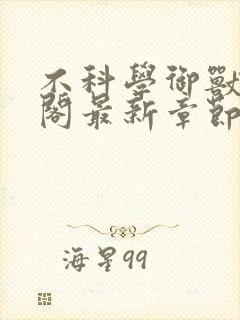 不科學御獸
閣最新章節
海星99